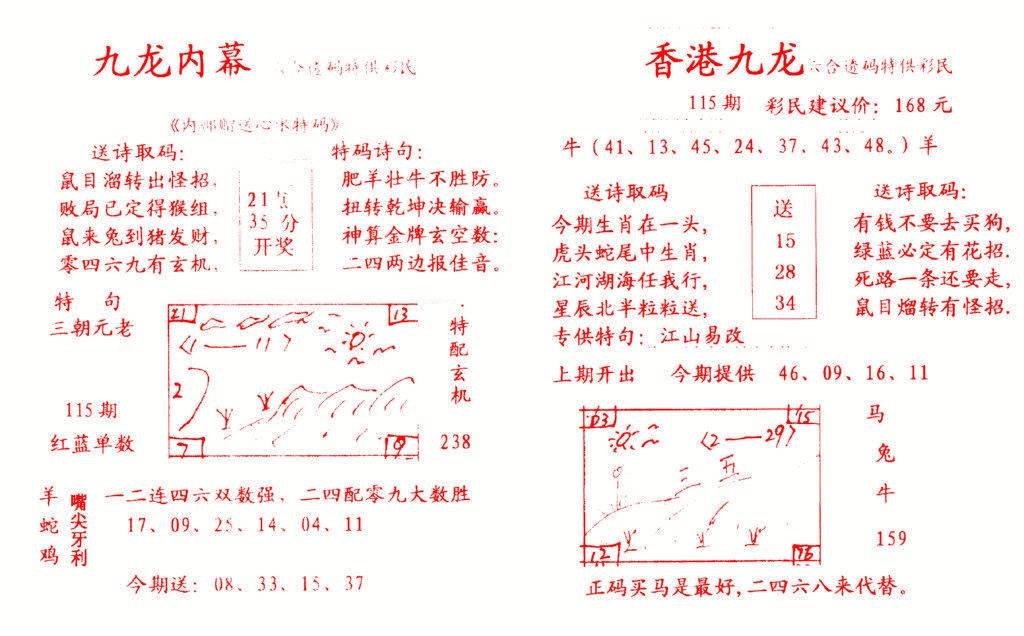 九龙内幕
六合透码特供彩民
《内部赠送心水特码》
送诗取码：
鼠目溜转出怪招，
败局已定得猴组，
鼠来兔到猪发财，
零四六九有玄机，
21
35 分
开奖
特码诗句：
肥羊壮牛不胜防。
扭转乾坤决输赢。
神算金牌玄空数：
二四两边报佳音。
特 句
三朝元老
115 期
红蓝单数
21
13
〈1——11〉
2
7
9
特配玄机
238
羊
蛇
鸡
嘴尖牙利
一二连四六双数强，二四配零九大数胜
17、09、25、14、04、11
今期送：08、33、15、37
香港九龙
六合透码特供彩民
115 期 彩民建议价：168 元
牛（41、13、45、24、37、43、48。）羊
送诗取码
今期生肖在一头，
虎头蛇尾中生肖，
江河湖海任我行，
星辰北半粒粒送，
专供特句：江山易改
送
15
28
34
送诗取码：
有钱不要去买狗，
绿蓝必定有花招.
死路一条还要走，
鼠目熘转有怪招.
上期开出 今期提供 46、09、16、11
03
15
〈2——29〉
三 五
12
马
兔
牛
159
正码买马是最好，二四六八来代替。